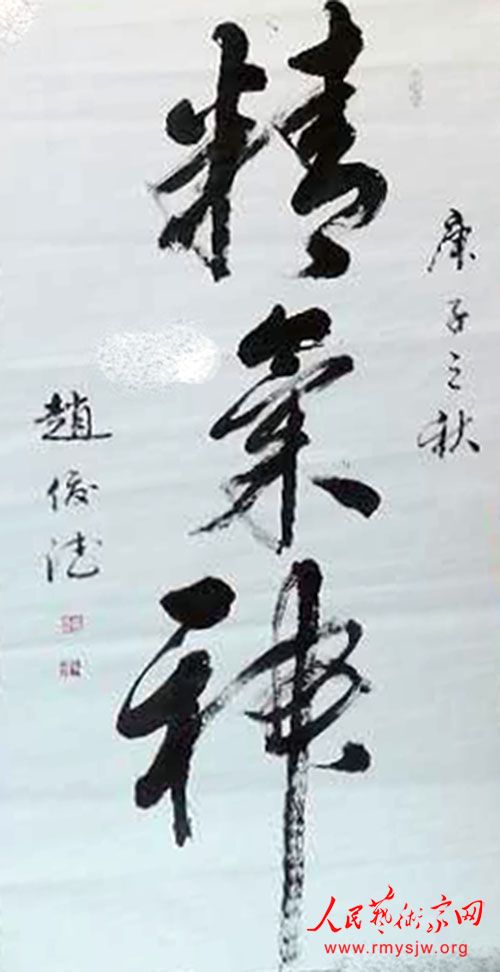 庚子之秋
精氣神
趙俊德
人民藝術家网
www.rmysjw.org